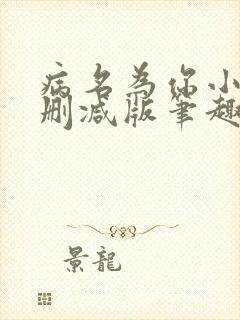 病名为你小
删减版笔趣
景龍